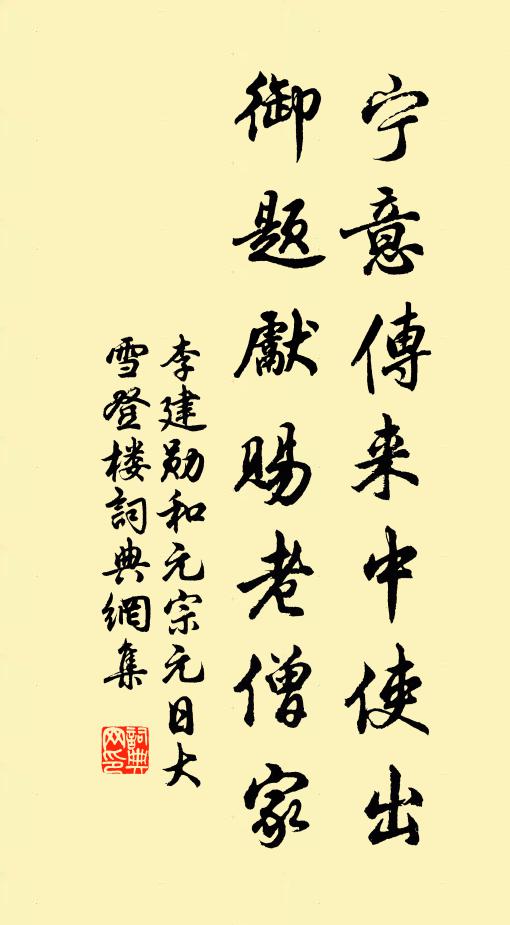 宁意傳来中使出
御题獻赐老僧家
李建勋和元宗元日大
雪登楼詞典網集
詞典网印